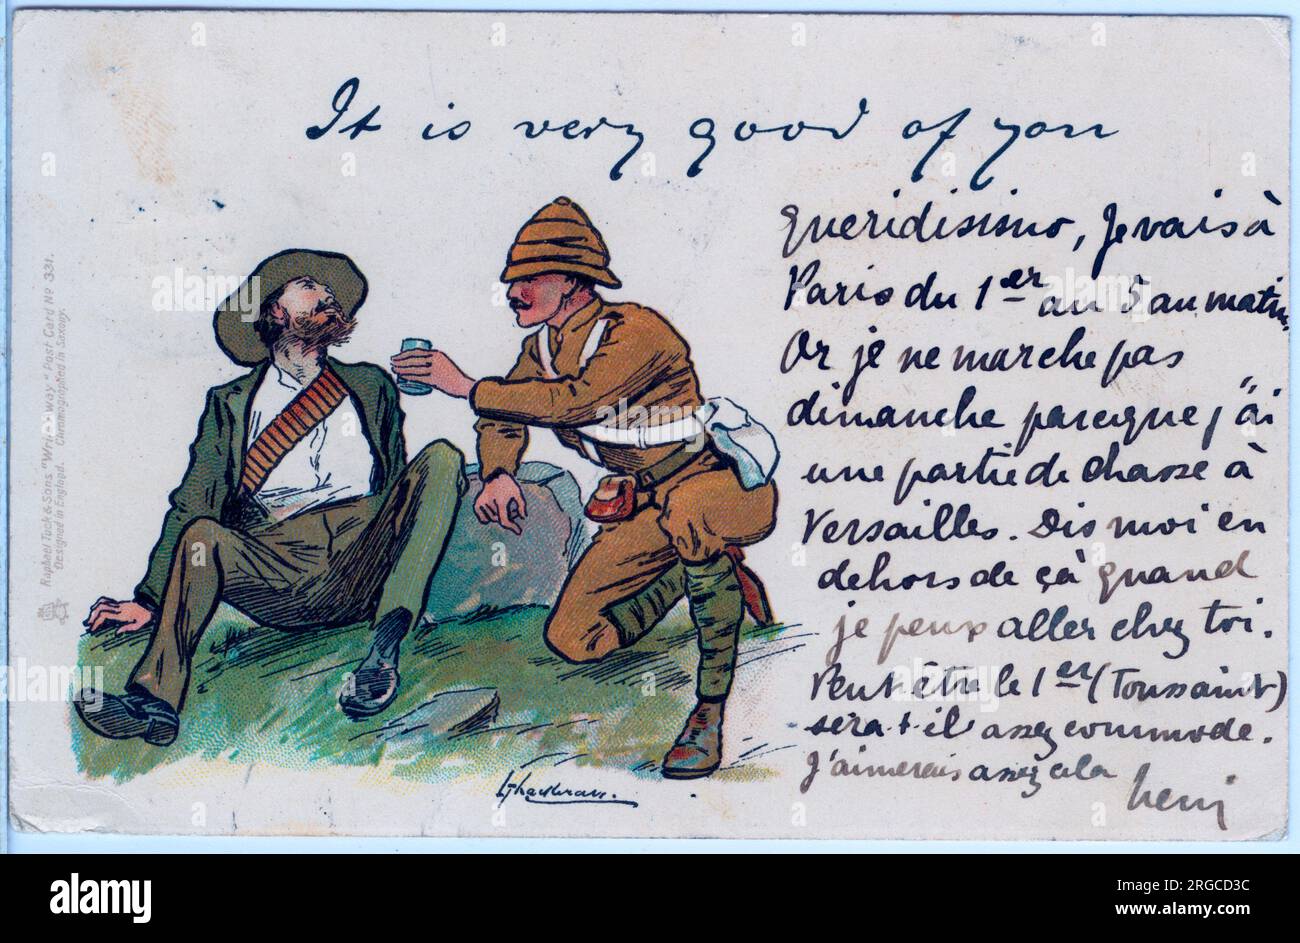 It is very good of you
Queridisimo, Je vais à
Paris du 1er au 5 au matin.
Or je ne marche pas
dimanche parceque j'ai
une partie de chasse à
Versailles. Dis moi en
dehors de çà quand
je peux aller chez toi.
Peut être le 1er (Toussaint)
sera-t-il assez commode.
J'aimerais assez cela
Raphael Tuck & Sons "Write away" Post Card No 331.
Designed in England. Chromographed in Saxony.
alamy
Image ID: 2RGCD3C
www.alamy.com